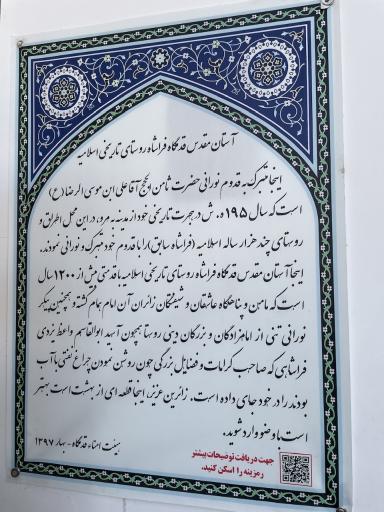 آستان مقدس قدمگاه فراشاه روستای تاریخی اسلامیه
اینجا متبرک به قدوم نورانی حضرت ثامن الحجج آقا علی ابن موسی الرضا (ع)
است که سال ۱۹۵ ه. ش در هجرت تاریخی خود از مدینه به مرو، در این محل اطراق و
روستای چند هزار ساله اسلامیه (فراشاه سابق) را با قدوم خود متبرک و نورانی نمودند.
اینجا آستان مقدس قدمگاه فراشاه روستای تاریخی اسلامیه با قدمتی بیش از ۱۲۰۰ سال
است که مامن و پناهگاه عاشقان و شیفتگان زائران آن امام همام گشته و همچنین پیکر
نورانی تنی از امامزادگان و بزرگان دینی روستا همچون آسید ابوالقاسم واعظ یزدی
فراشاهی که صاحب کرامات و فضایل بزرگی چون روشن نمودن چراغ نفتی با آب
بودند را در خود جای داده است. زائرین عزیز، اینجا قطعه ای از بهشت است بهتر
است با وضو وارد شوید.
هیئت امناء قدمگاه - بهار ۱۳۹۷
جهت دریافت توضیحات بیشتر
رمزینه را اسکن کنید.